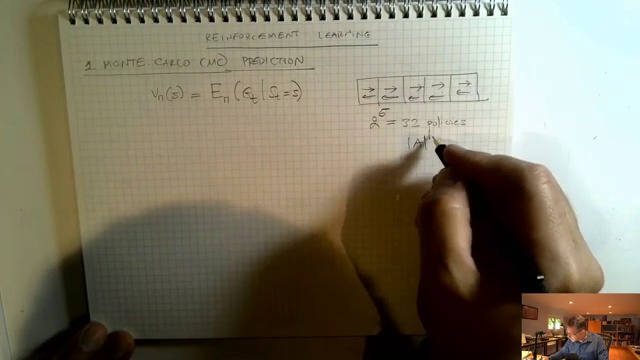 REINFORCEMENT LEARNING
1 MONTE CARLO (MC) PREDICTION
Vπ(s) = Eπ(Gt | St = s)
2^5 = 32 policies
|A|